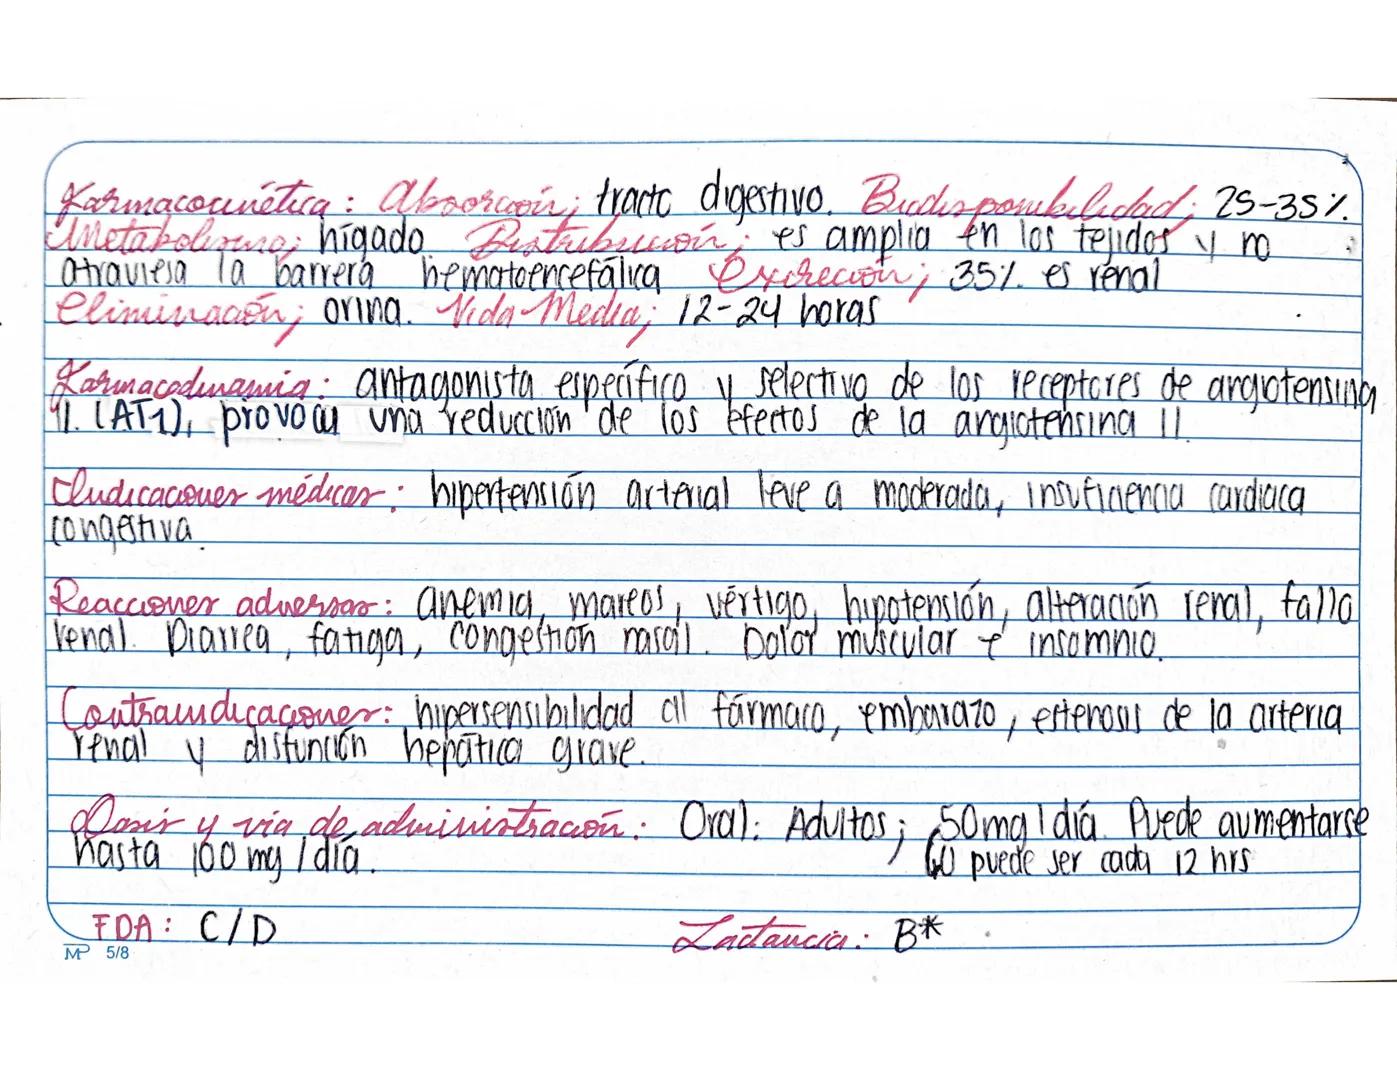 Farmacocinética: Absorción; tracto digestivo. Biodisponibilidad; 25-35%.
Metabolismo; hígado Distribución; es amplia en los tejidos y no
atraviesa la barrera hematoencefálica Excreción; 35% es renal
Eliminación; orina. Vida Media; 12-24 horas
Farmacodinamia: antagonista específico y selectivo de los receptores de angiotensina
II. (AT1), provoca una reducción de los efectos de la angiotensina II.
Indicaciones médicas: hipertensión arterial leve a moderada, insuficiencia cardiaca
congestiva.
Reacciones adversas: anemia, mareos, vértigo, hipotensión, alteración renal, fallo
renal. Diarrea, fatiga, congestión nasal. Dolor muscular e insomnio.
Contraindicaciones: hipersensibilidad al fármaco, embarazo, estenosis de la arteria
renal y disfunción hepática grave.
Dosis y vía de administración: Oral: Adultos; 50mg/día. Puede aumentarse
hasta 100 mg/día. O puede ser cada 12 hrs
FDA: C/D Lactancia: B*
MP 5/8